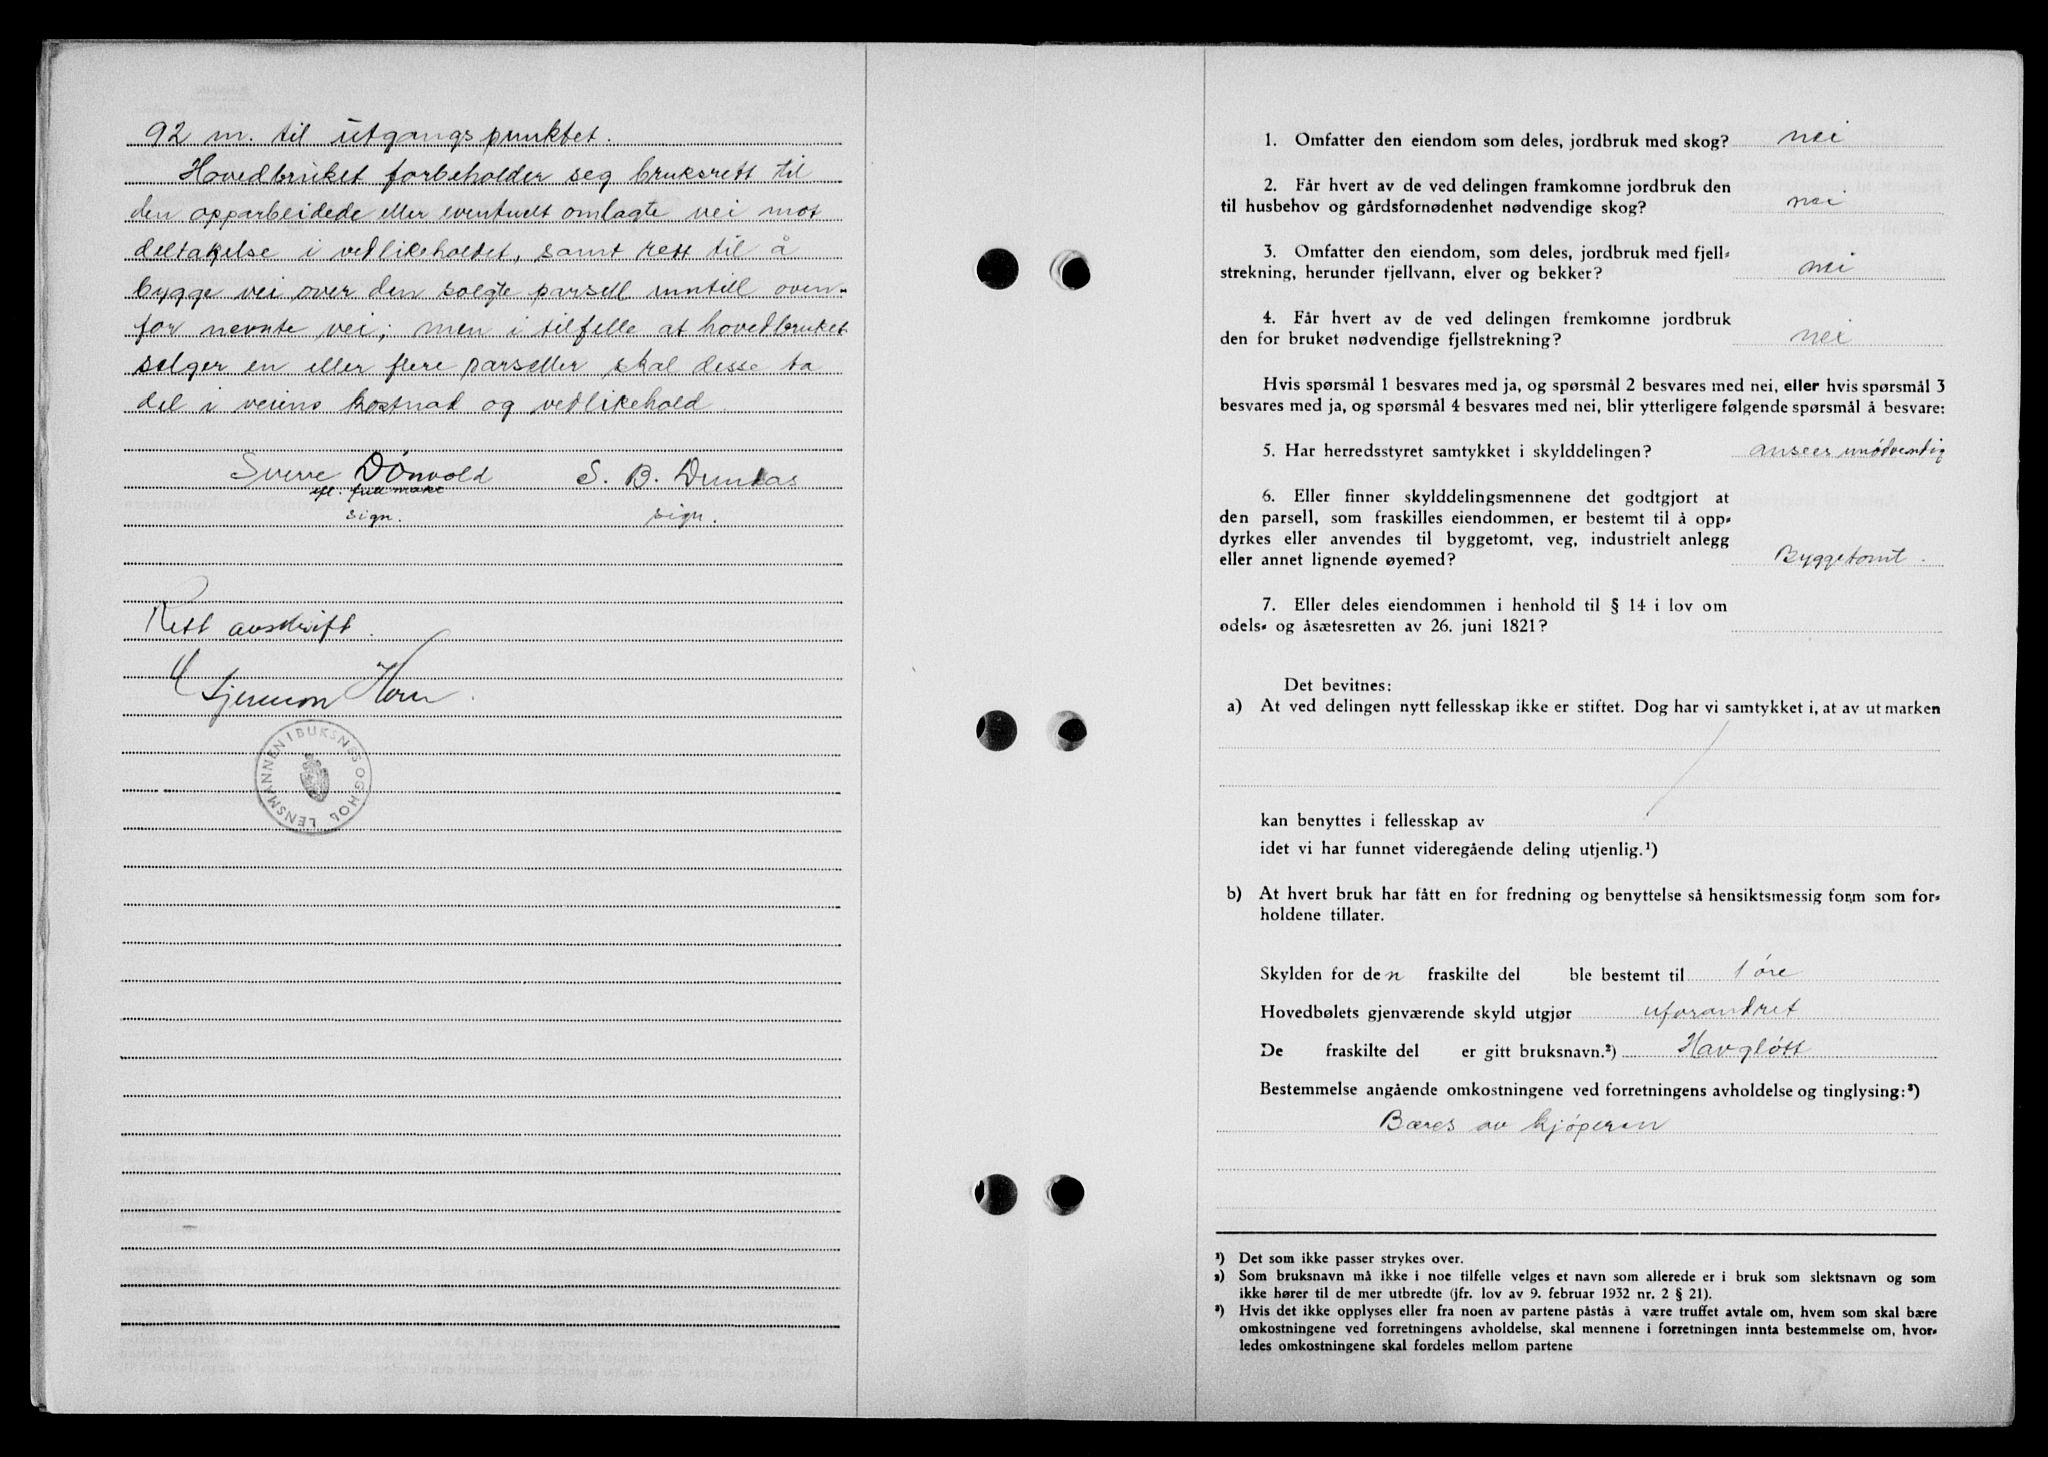 92 m. til utgangspunktet.
Hovedbruket forbeholder seg bruksrett til
den opparbeidede eller eventuelt omlagte vei mot
deltakelse i vedlikeholdet, samt rett til å
bygge vei over den solgte parsell inntill oven-
for nevnte vei; men i tilfelle at hovedbruket
selger en eller flere parseller skal desse ta
del i veiens kostnad og vedlikehold.
Sverre Dönvold S. B. Dundas
efl. fullmakt
sign. sign.
Rett avskrift.
Horn
LENSMANNEN I BUKSNES OG HOL
1. Omfatter den eiendom som deles, jordbruk med skog? nei
2. Får hvert av de ved delingen framkomne jordbruk den
til husbehov og gårdsfornødenhet nødvendige skog? nei
3. Omfatter den eiendom, som deles, jordbruk med fjell-
strekning, herunder fjellvann, elver og bekker? nei
4. Får hvert av de ved delingen fremkomne jordbruk
den for bruket nødvendige fjellstrekning? nei
Hvis spørsmål 1 besvares med ja, og spørsmål 2 besvares med nei, eller hvis spørsmål 3
besvares med ja, og spørsmål 4 besvares med nei, blir ytterligere følgende spørsmål å besvare:
5. Har herredsstyret samtykket i skylddelingen? ansees unødvendig
6. Eller finner skylddelingsmennene det godtgjort at
den parsell, som fraskilles eiendommen, er bestemt til å opp-
dyrkes eller anvendes til byggetomt, veg, industrielt anlegg
eller annet lignende øyemed? Byggetomt.
7. Eller deles eiendommen i henhold til § 14 i lov om
odels- og åsætesretten av 26. juni 1821?
Det bevitnes:
a) At ved delingen nytt fellesskap ikke er stiftet. Dog har vi samtykket i, at av utmarken
kan benyttes i fellesskap av
idet vi har funnet videregående deling utjenlig.¹)
b) At hvert bruk har fått en for fredning og benyttelse så hensiktsmessig form som for-
holdene tillater.
Skylden for den fraskilte del ble bestemt til 1 øre
Hovedbølets gjenværende skyld utgjør uforandret
De fraskilte del er gitt bruksnavn.²) Havgløtt
Bestemmelse angående omkostningene ved forretningens avholdelse og tinglysing:³)
Bæres av kjøperen
¹) Det som ikke passer strykes over.
²) Som bruksnavn må ikke i noe tilfelle velges et navn som allerede er i bruk som slektsnavn og som
ikke hører til de mer utbredte (jfr. lov av 9. februar 1932 nr. 2 § 21).
³) Hvis det ikke opplyses eller fra noen av partene påstås å være truffet avtale om, hvem som skal bære
omkostningene ved forretningens avholdelse, skal mennene i forretningen innta bestemmelse om, hvor-
ledes omkostningene skal fordeles mellom partene